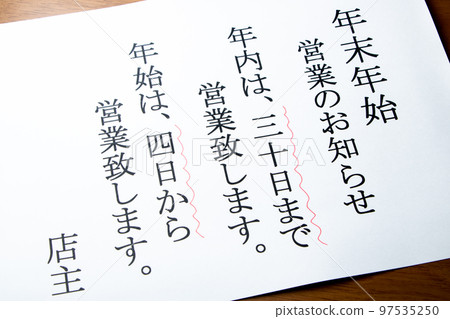 年末年始
営業のお知らせ
年内は、三十日まで
営業致します。
年始は、四日から
営業致します。
店主
PIXTA
97535250